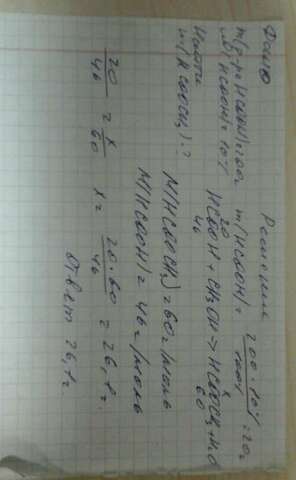 Дано
m(р-ра HCOOH)=200г
ω(HCOOH)=10%
Найти
m(HCOOCH3)-?
Решение
m(HCOOH)= 200·10% / 100% =20г
20 x
HCOOH + CH3OH > HCOOCH3+H2O
46 60
M(HCOOCH3)=60г/моль
M(HCOOH)=46г/моль
20/46 = x/60 x= 20·60/46 = 26,1г.
Ответ 26,1г